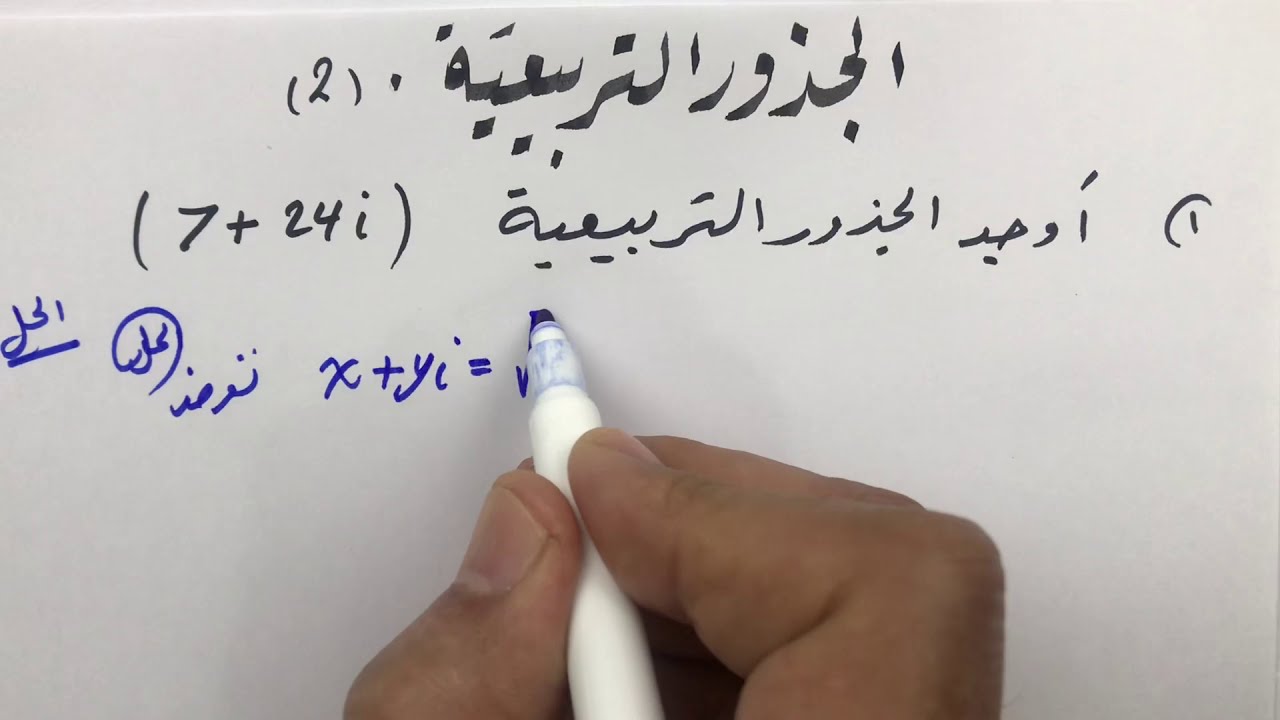 الجذور التربيعيّة . (2)
١) أوجد الجذور التربيعية (7 + 24i)
الحل
الحل نفرض x + yi = √